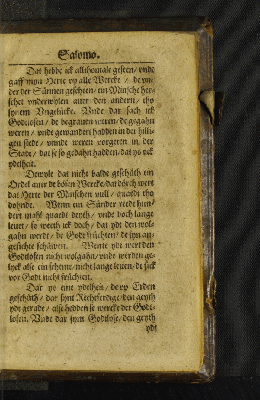 Salomo.
Dat hebbe ick allthomale geseen / vnde
gaff myn Herte vp alle Wercke / de vn-
der der Sünnen gescheen / ein Minsche her-
schet vnderwylen auer den andern / tho
synem Vngelücke. Vnde dar sach ick
Godtlosen / de begrauen weren / de gegahn
weren / vnde gewandert hadden in der hilli-
gen stede / vnnde weren vorgeten in der
Stadt / dat se so gedahn hadden / dat ys ock
ydelheit.
Dewyle dat nicht balde geschüth ein
Ordel auer de bösen Wercke / dardörch wert
dat Herte der Minschen vull / quadt tho
dohnde. Wenn ein Sünder
mahl quadt deyth / vnde doch lange
leuet / so weeth ick doch / dat ydt den wol-
gahn werdt / de Godt früchten / de syn an-
gesichte schüwen. Wente ydt wert den
Godtlosen nicht wolgahn / vnde werden ge-
lyck alse ein scheme / nicht lange leuen / de sick
vor Godt nicht früchten.
Dar ys eine ydelheit / de vp Erden
geschüth / dar synt Rechtferdige / den geyth
ydt gerade / alse hedden se wercke der Godt-
losen. Vnde dar synt Godtlose / den geyth
ydt